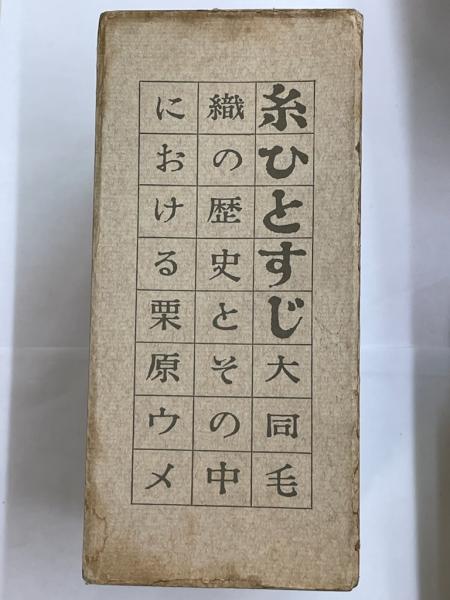 糸ひとすじ大同毛
織の歴史とその中
における栗原ウメ